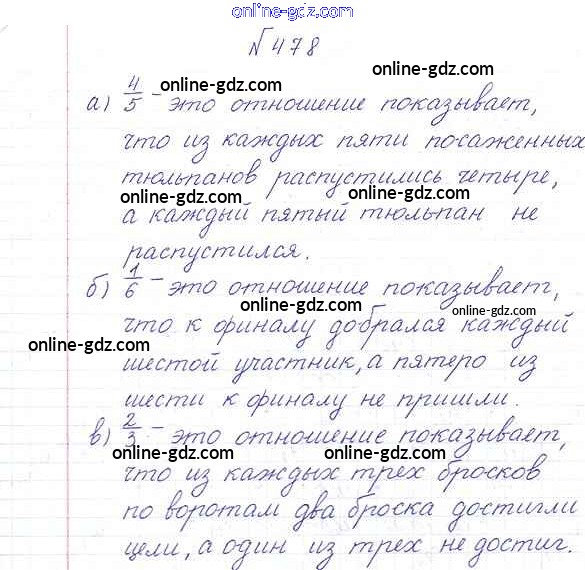 online-gdz.com
№478
online-gdz.com online-gdz.com
а) 4/5 - это отношение показывает,
что из каждых пяти посаженных
тюльпанов распустились четыре,
online-gdz.com online-gdz.com
а каждый пятый тюльпан не
распустился.
б) 1/6 - это отношение показывает,
online-gdz.com online-gdz.com
что к финалу добрался каждый
online-gdz.com
шестой участник, а пятеро из
шести к финалу не пришли.
в) 2/3 - это отношение показывает,
online-gdz.com online-gdz.com
что из каждых трех бросков
по воротам два броска достигли
цели, а один из трех не достиг.
online-gdz.com online-gdz.com